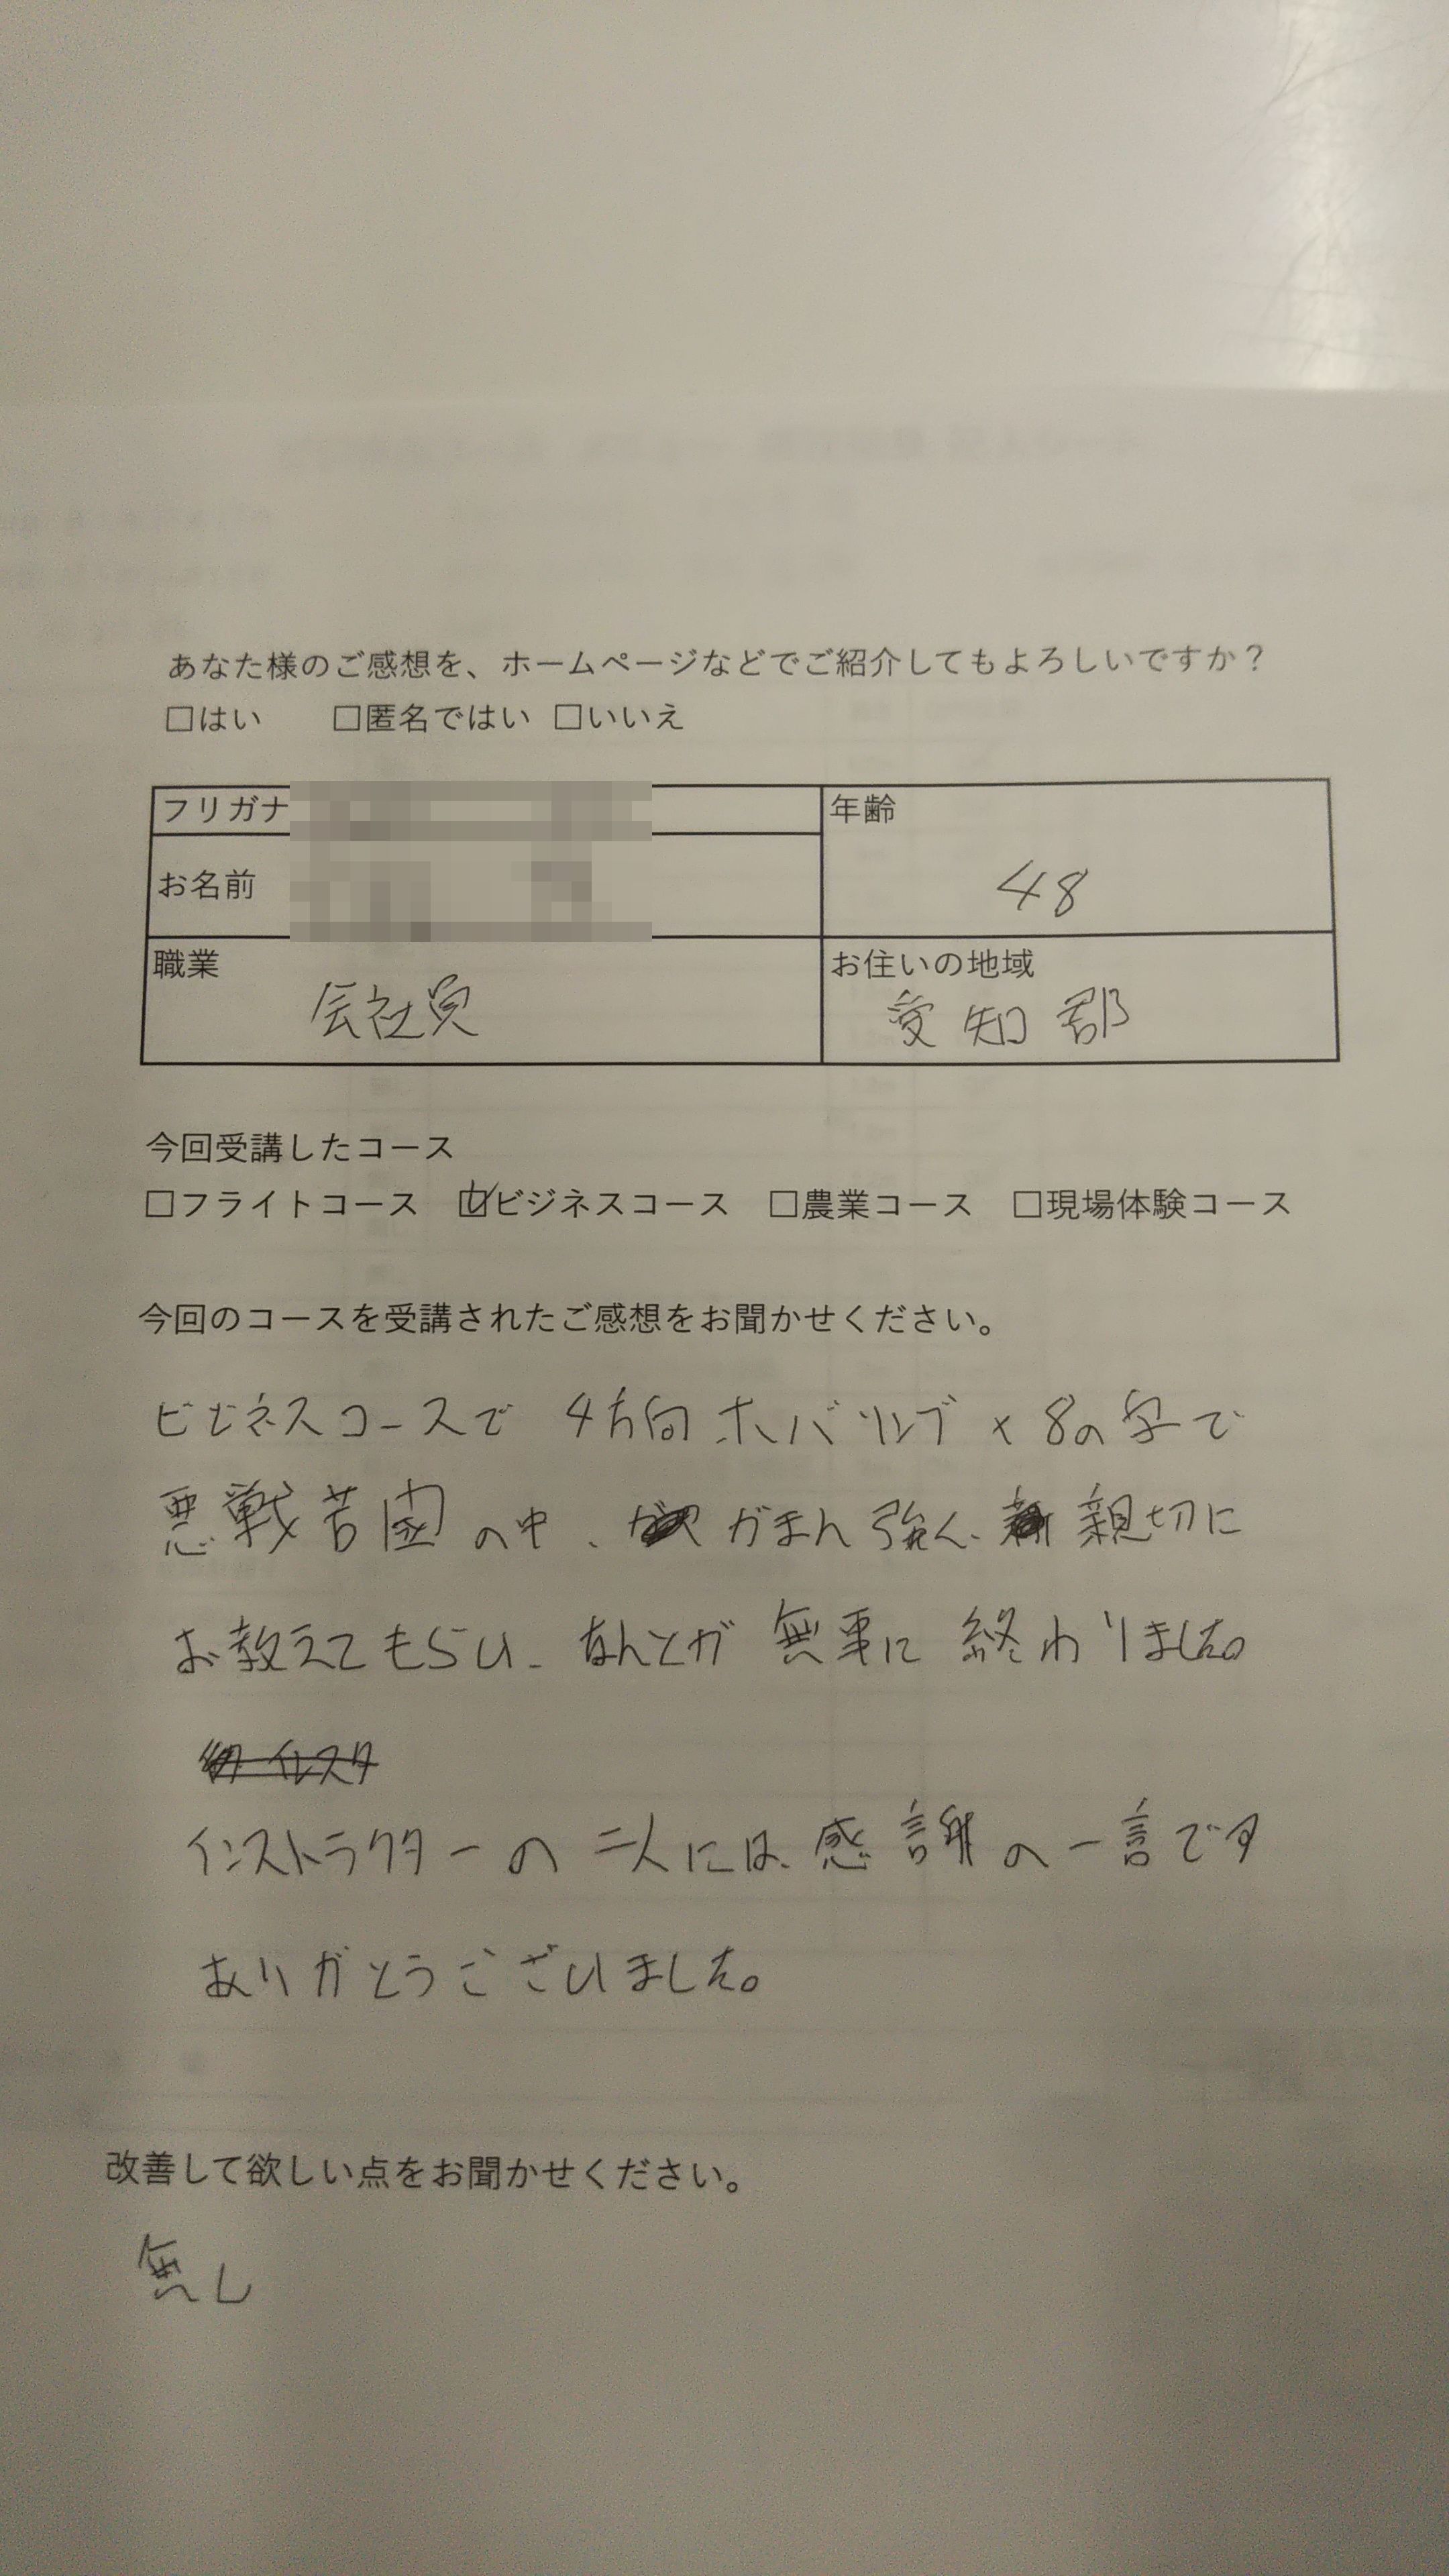 あなた様のご感想を、ホームページなどでご紹介してもよろしいですか？
□はい □匿名ではい □いいえ
フリガナ
年齢
お名前
48
職業
お住いの地域
会社員
愛知郡
今回受講したコース
□フライトコース ☑ビジネスコース □農業コース □現場体験コース
今回のコースを受講されたご感想をお聞かせください。
ビジネスコースで 4方向ホバリング×8の字で
悪戦苦闘の中、がまん強く、親切に
お教えてもらい、なんとか無事に終わりました。
インスタ
インストラクターの二人には、感謝の一言です
ありがとうございました。
改善して欲しい点をお聞かせください。
無し